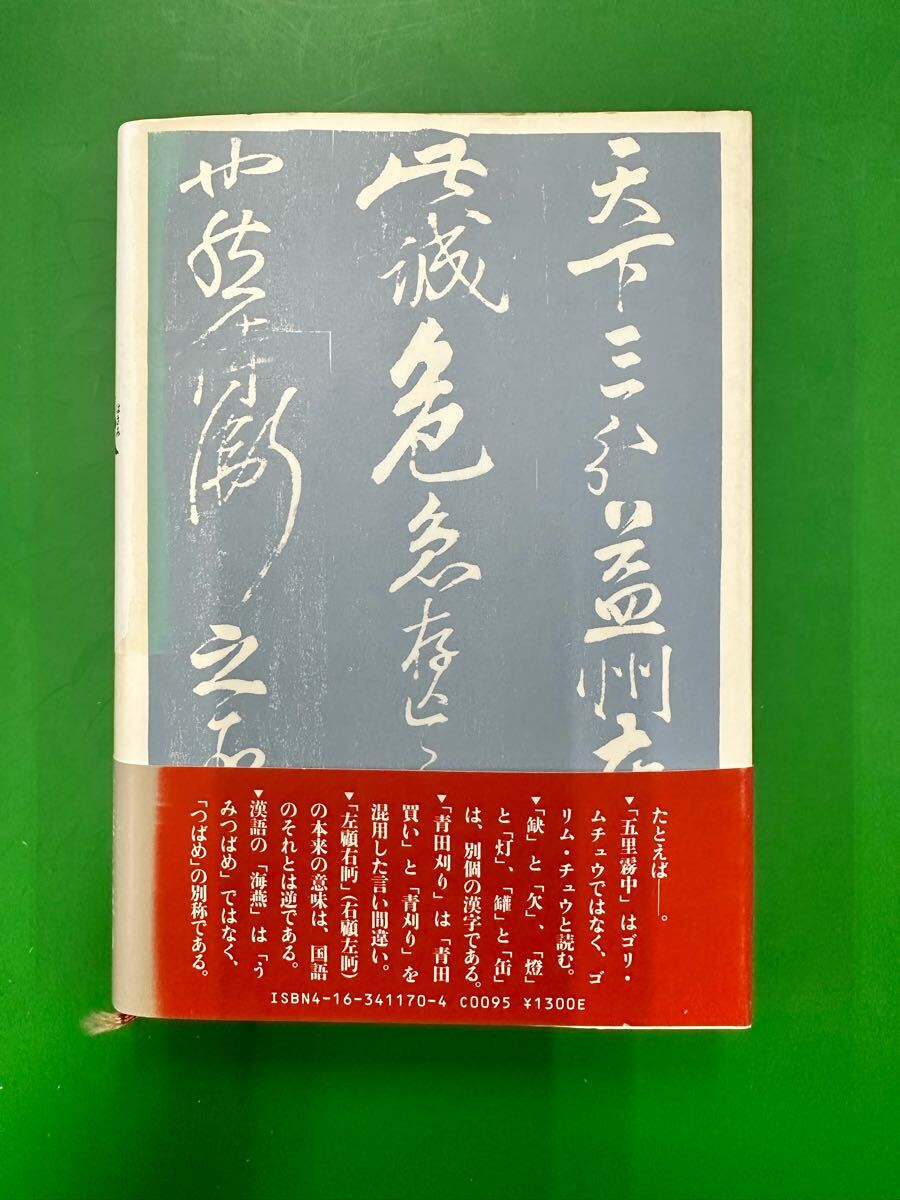 天下三分益州
此誠危急存亡之
也然侍衛之臣
たとえば――。
▼「五里霧中」はゴリ・
ムチュウではなく、ゴ
リム・チュウと読む。
▼「缺」と「欠」、「燈」
と「灯」、「罐」と「缶」
は、別個の漢字である。
▼「青田刈り」は「青田
買い」と「青刈り」を
混用した言い間違い。
▼「左顧右眄」(右顧左眄)
の本来の意味は、国語
のそれとは逆である。
▼漢語の「海燕」は「う
みつばめ」ではなく、
「つばめ」の別称である。
ISBN4-16-341170-4 C0095 ¥1300E